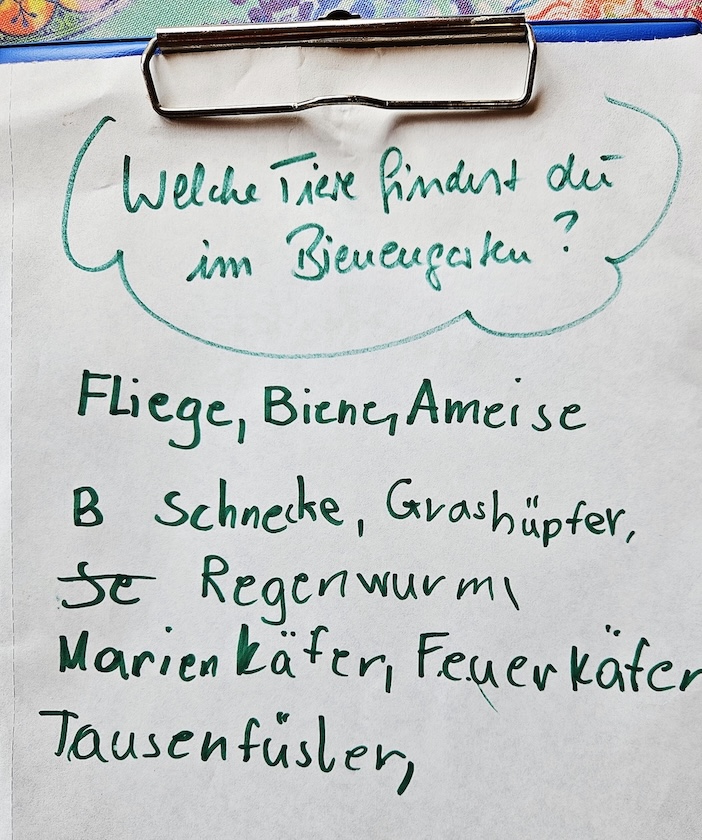 Welche Tiere findest du
im Bienengarten?
Fliege, Biene, Ameise
B Schnecke, Grashüpfer,
Je Regenwurm,
Marienkäfer, Feuerkäfer
Tausenfüsler,